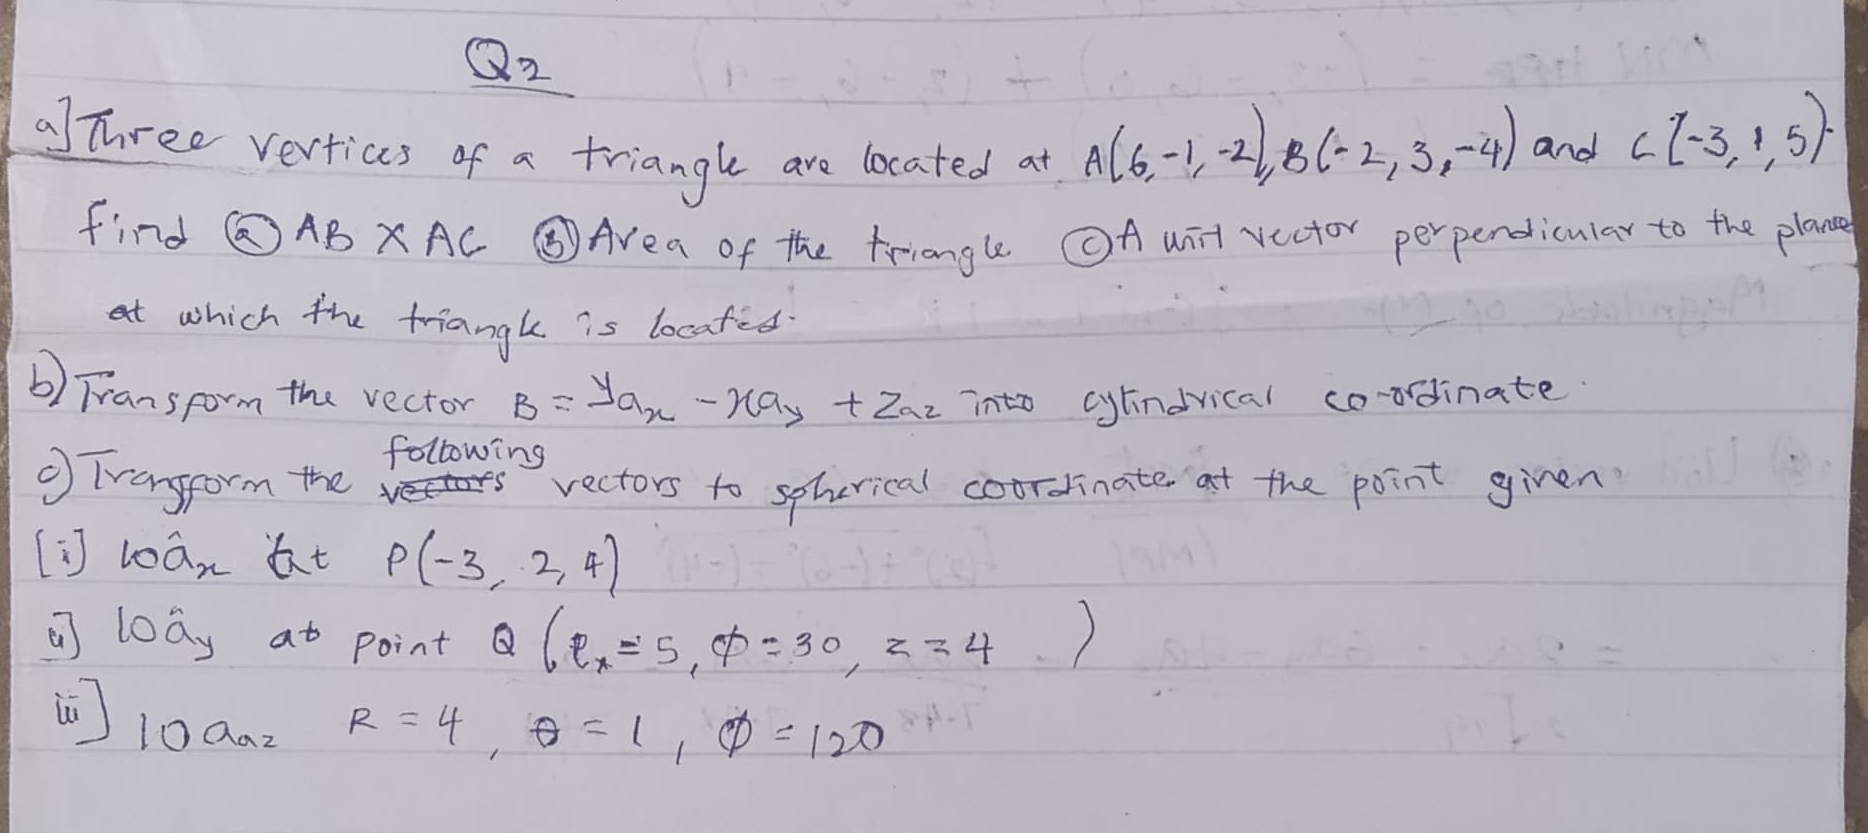 Q2
a] Three vertices of a triangle are located at A(6,-1,-2), B(-2,3,-4) and C(-3,1,5).
find ⓐ AB X AC ⓑ Area of the triangle ⓒ A unit vector perpendicular to the plane
at which the triangle is located.
b) Transform the vector B = yax - xay + zaz into cylindrical co-ordinate.
following
c) Transform the vectors vectors to spherical coordinate at the point given.
[i] 10âx at P(-3, 2, 4)
ii] 10ây at point Q (ρ = 5, φ = 30, z = 4 )
iii] 10 aaz R = 4, θ = 1, φ = 120